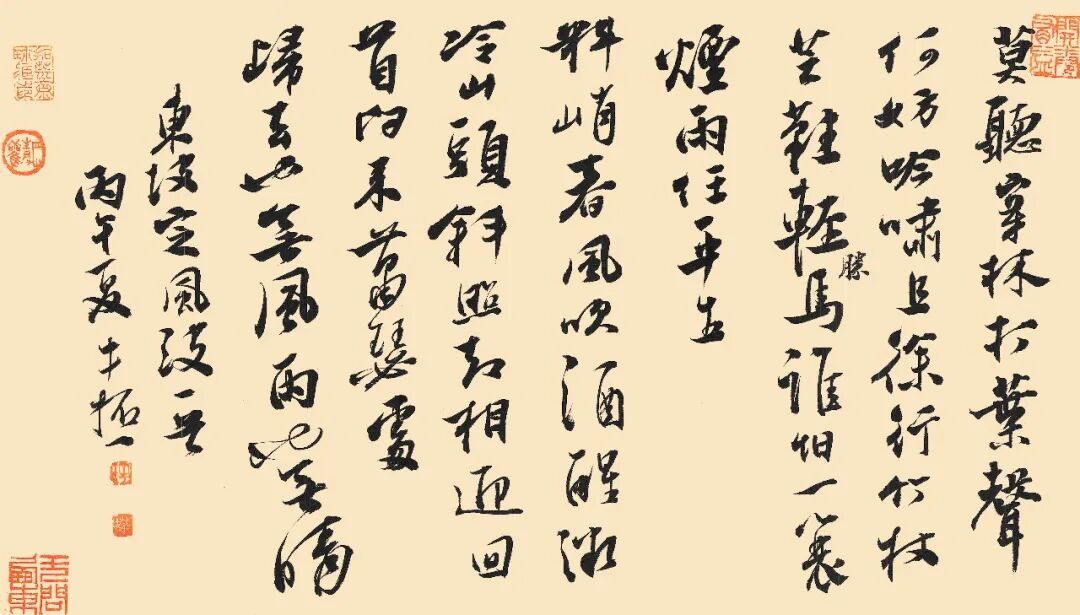 開卷有益
莫聽穿林打葉聲
何妨吟嘯且徐行竹杖
芒鞋輕勝馬誰怕一蓑
煙雨任平生
料峭春風吹酒醒微
冷山頭斜照却相迎回
首向來蕭瑟處
歸去也無風雨也無晴
東坡定風波一
丙午夏